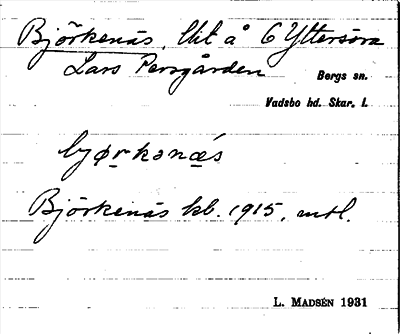 Björkenäs, lht å 6 Yttersöra
Lars Persgården
Bergs sn.
Vadsbo hd. Skar. l.
bjørkənæs
Björkenäs kb. 1915, mtl.
L. MADSÉN 1931